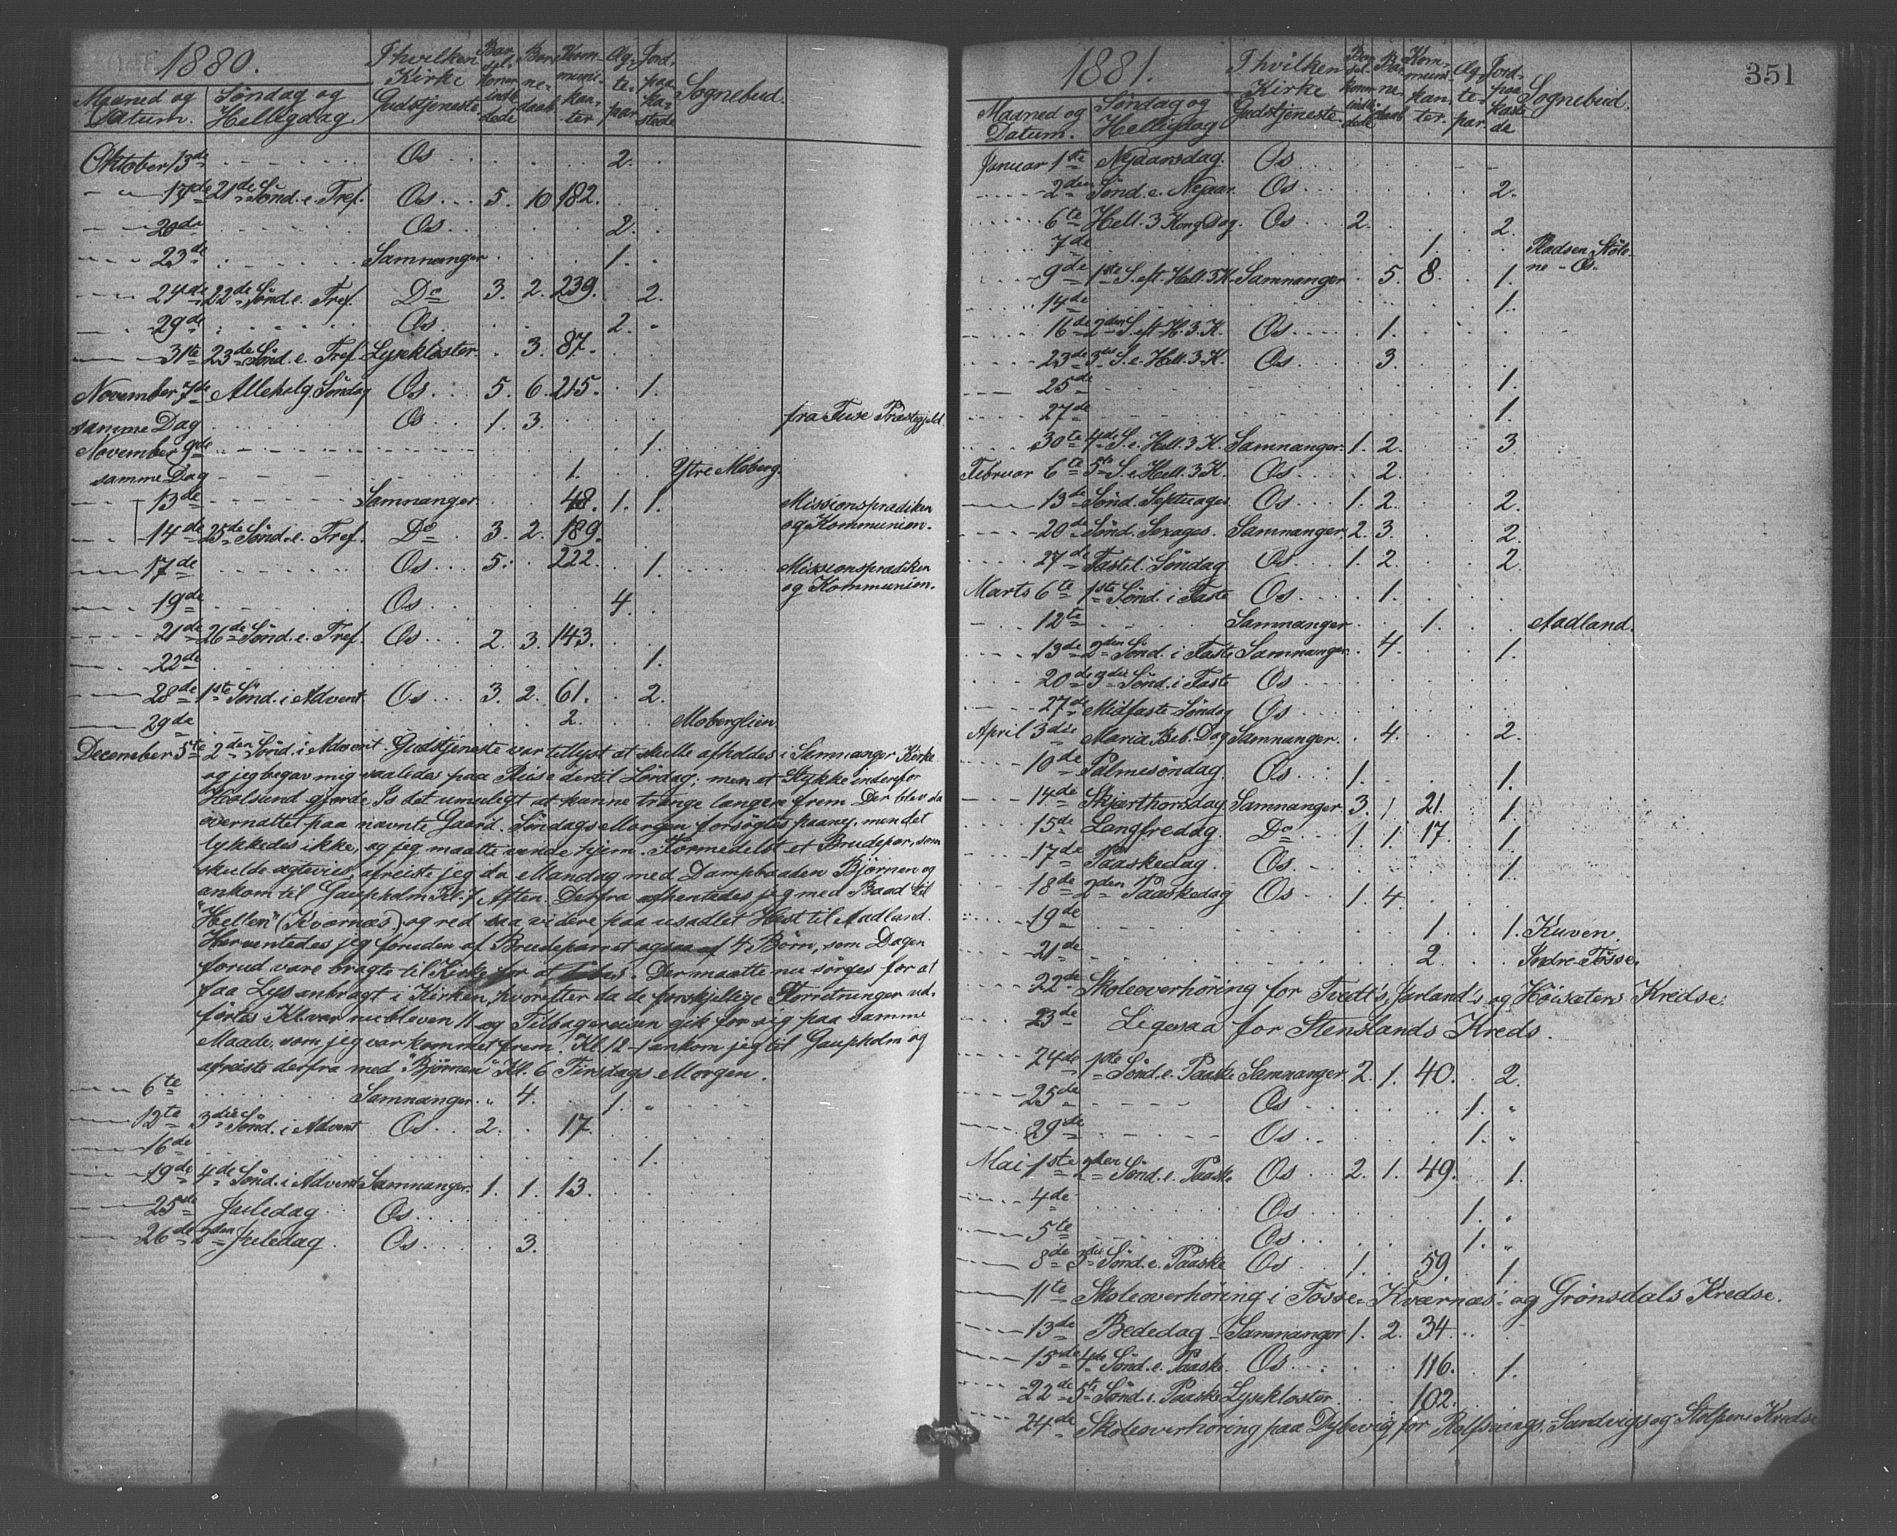 1880.
Maaned og Datum. Søndag og Helligdag I hvilken Kirke Gudstjeneste Barselkonur indledede Bar- ne- daab Kom- muni- kan- ter Ægte- par Jord- paa- ka- stede Sognebud.
Oktober 13de Os 2.
17de 21de Sønd. e. Tref. Os 5. 10 182.
20de Os 2.
23de Samnanger 1.
24de 22de Sønd. e. Tref. Do 3. 2. 239. 2.
29de Os 2.
31te 23de Sønd. e. Tref. Lysekloster. 3. 87.
November 7de Allehelg. Søndag Os 5. 6. 215. 1.
samme Dag Os 1. 3. fra Fuse Præstegjeld.
November 9de 1.
samme Dag 1. Ytre Moberg
13de Samnanger 48. 1. 1. Missionsprædiken
14de 25de Sønd. e. Tref. Do 3. 2. 189. og Kommunion.
17de Os 5. 222. 1. Missionsprædiken
og Kommunion.
19de Os 4.
21de 26de Sønd. e. Tref. Os 2. 3. 143.
22de 1.
28de 1ste Sønd. i Advent Os 3. 2. 61. 2.
29de 2. Moberglien
December 5te 2den Sønd. i Advent. Gudstjeneste var tillyst at skulle afholdes i Samnanger Kirke
og jeg begav mig saaledes paa Reise dertil Lørdag; men et Stykke indenfor
Holsund gjorde Is det umuligt at kunne trænge længere frem. Der blev da
overnattet paa nævnte Gaard. Søndags Morgen forsøgtes paany, men det
lykkedes ikke, og jeg maatte vende hjem. Formedelst et Brudepar, som
skulde ægtevies, afreiste jeg da Mandag med Dampbaaden Bjørnen og
ankom til Gaupholm Kl. 7 Aften. Derfra afhentedes jeg med Baad til
"Hellen" (Kvernæs) og red saa videre paa usadlet Hest til Aadland.
Her ventedes jeg foruden af Brudeparret ogsaa af 4 Børn, som Dagen
forud vare bragte til Kirke for at Der maatte nu sørges for at
faa Lys anbragt i Kirken, hvorefter da de forskjellige Forretninger ud-
førtes. Kl. var nu bleven 11 og Tilbagereisen gik for sig paa samme
Maade, som jeg var kommet frem. Kl. 12-1 ankom jeg til Gaupholm og
afreiste derfra med "Bjørnen" Kl. 6 Tirsdags Morgen.
6te Samnanger. 4. 1.
12te 3die Sønd. i Advent Os 2. 17.
16de 1.
19de 4de Sønd. i Advent Samnanger 1. 1. 13.
25de Juledag Os
26de 2den Juledag. Os 3.
1881. 351
Maaned og Datum. Søndag og Helligdag I hvilken Kirke Gudstjeneste Sognebud.
Januar 1ste Nyaarsdag. Os
2den Sønd. e. Nyaar Os 2.
6te Hell. 3 Kong. Dag. Os 2. 2.
7de 1.
9de 1ste S. eft. Hell. 3 K. Samnanger 5. 8. 1.
14de 1.
16de 2den S. eft. H. 3. K. Os 1.
23de 3die S. e. Hell. 3 K. Os 3.
25de 1.
27de 1.
30te 4de S. e. Hell. 3 K. Samnanger. 1. 2. 3
Februar 6te 5te S. e. Hell. 3 K. Os 2.
13de Sønd. Septuages. Os 1. 2. 2.
20de Sønd. Sexages. Samnanger. 2. 3. 2.
27de Fastel. Søndag Os 1. 2. 2.
Marts 6te 1ste Sønd. i Faste Os 1.
12te Samnanger 1. Aadland.
13de 2den Sønd. i Faste Samnanger. 4. 1.
20de 3die Sønd. i Faste Os
27de Midfaste Søndag Os
April 3die Maria Beb. Dag Samnanger. 4. 2.
10de Palmesøndag. Os 1. 1.
14de Skjærthorsdag Samnanger 3. 1 21. 1.
15de Langfredag. Do 1. 1. 17. 1.
17de Paaskedag. Os 1.
18de 2den Paaskedag Os 1. 4.
19de 1. 1. Kuven
21de 2. Indre Tøsse.
22de Skoleoverhøring for Tvedt's, Jarland's og Høisæters Kredse.
23de Ligesaa for Stenslands Kreds.
24de 1ste Sønd. e. Paaske Samnanger 2. 1. 40. 2.
25de Os 1. "
29de Os 1. "
Mai 1ste 2den Sønd. e. Paaske Os 2. 1. 49. 1.
4de Os 1. "
5te Os 1. "
8de 3die Sønd. e. Paaske Os 1. 59. 1.
11te Skoleoverhøring i Tøsse- Kværnæs- og Grønsdals Kredse.
13de Bededag Samnanger 1. 2. 34.
15de 4de Sønd. e. Paaske Os 116. 1.
22de 5te Sønd. e. Paaske Lysekloster. 102.
24de Skoleoverhøring paa Dybevig for Rolfsvaags- Sandvigs og Stolpens Kredse